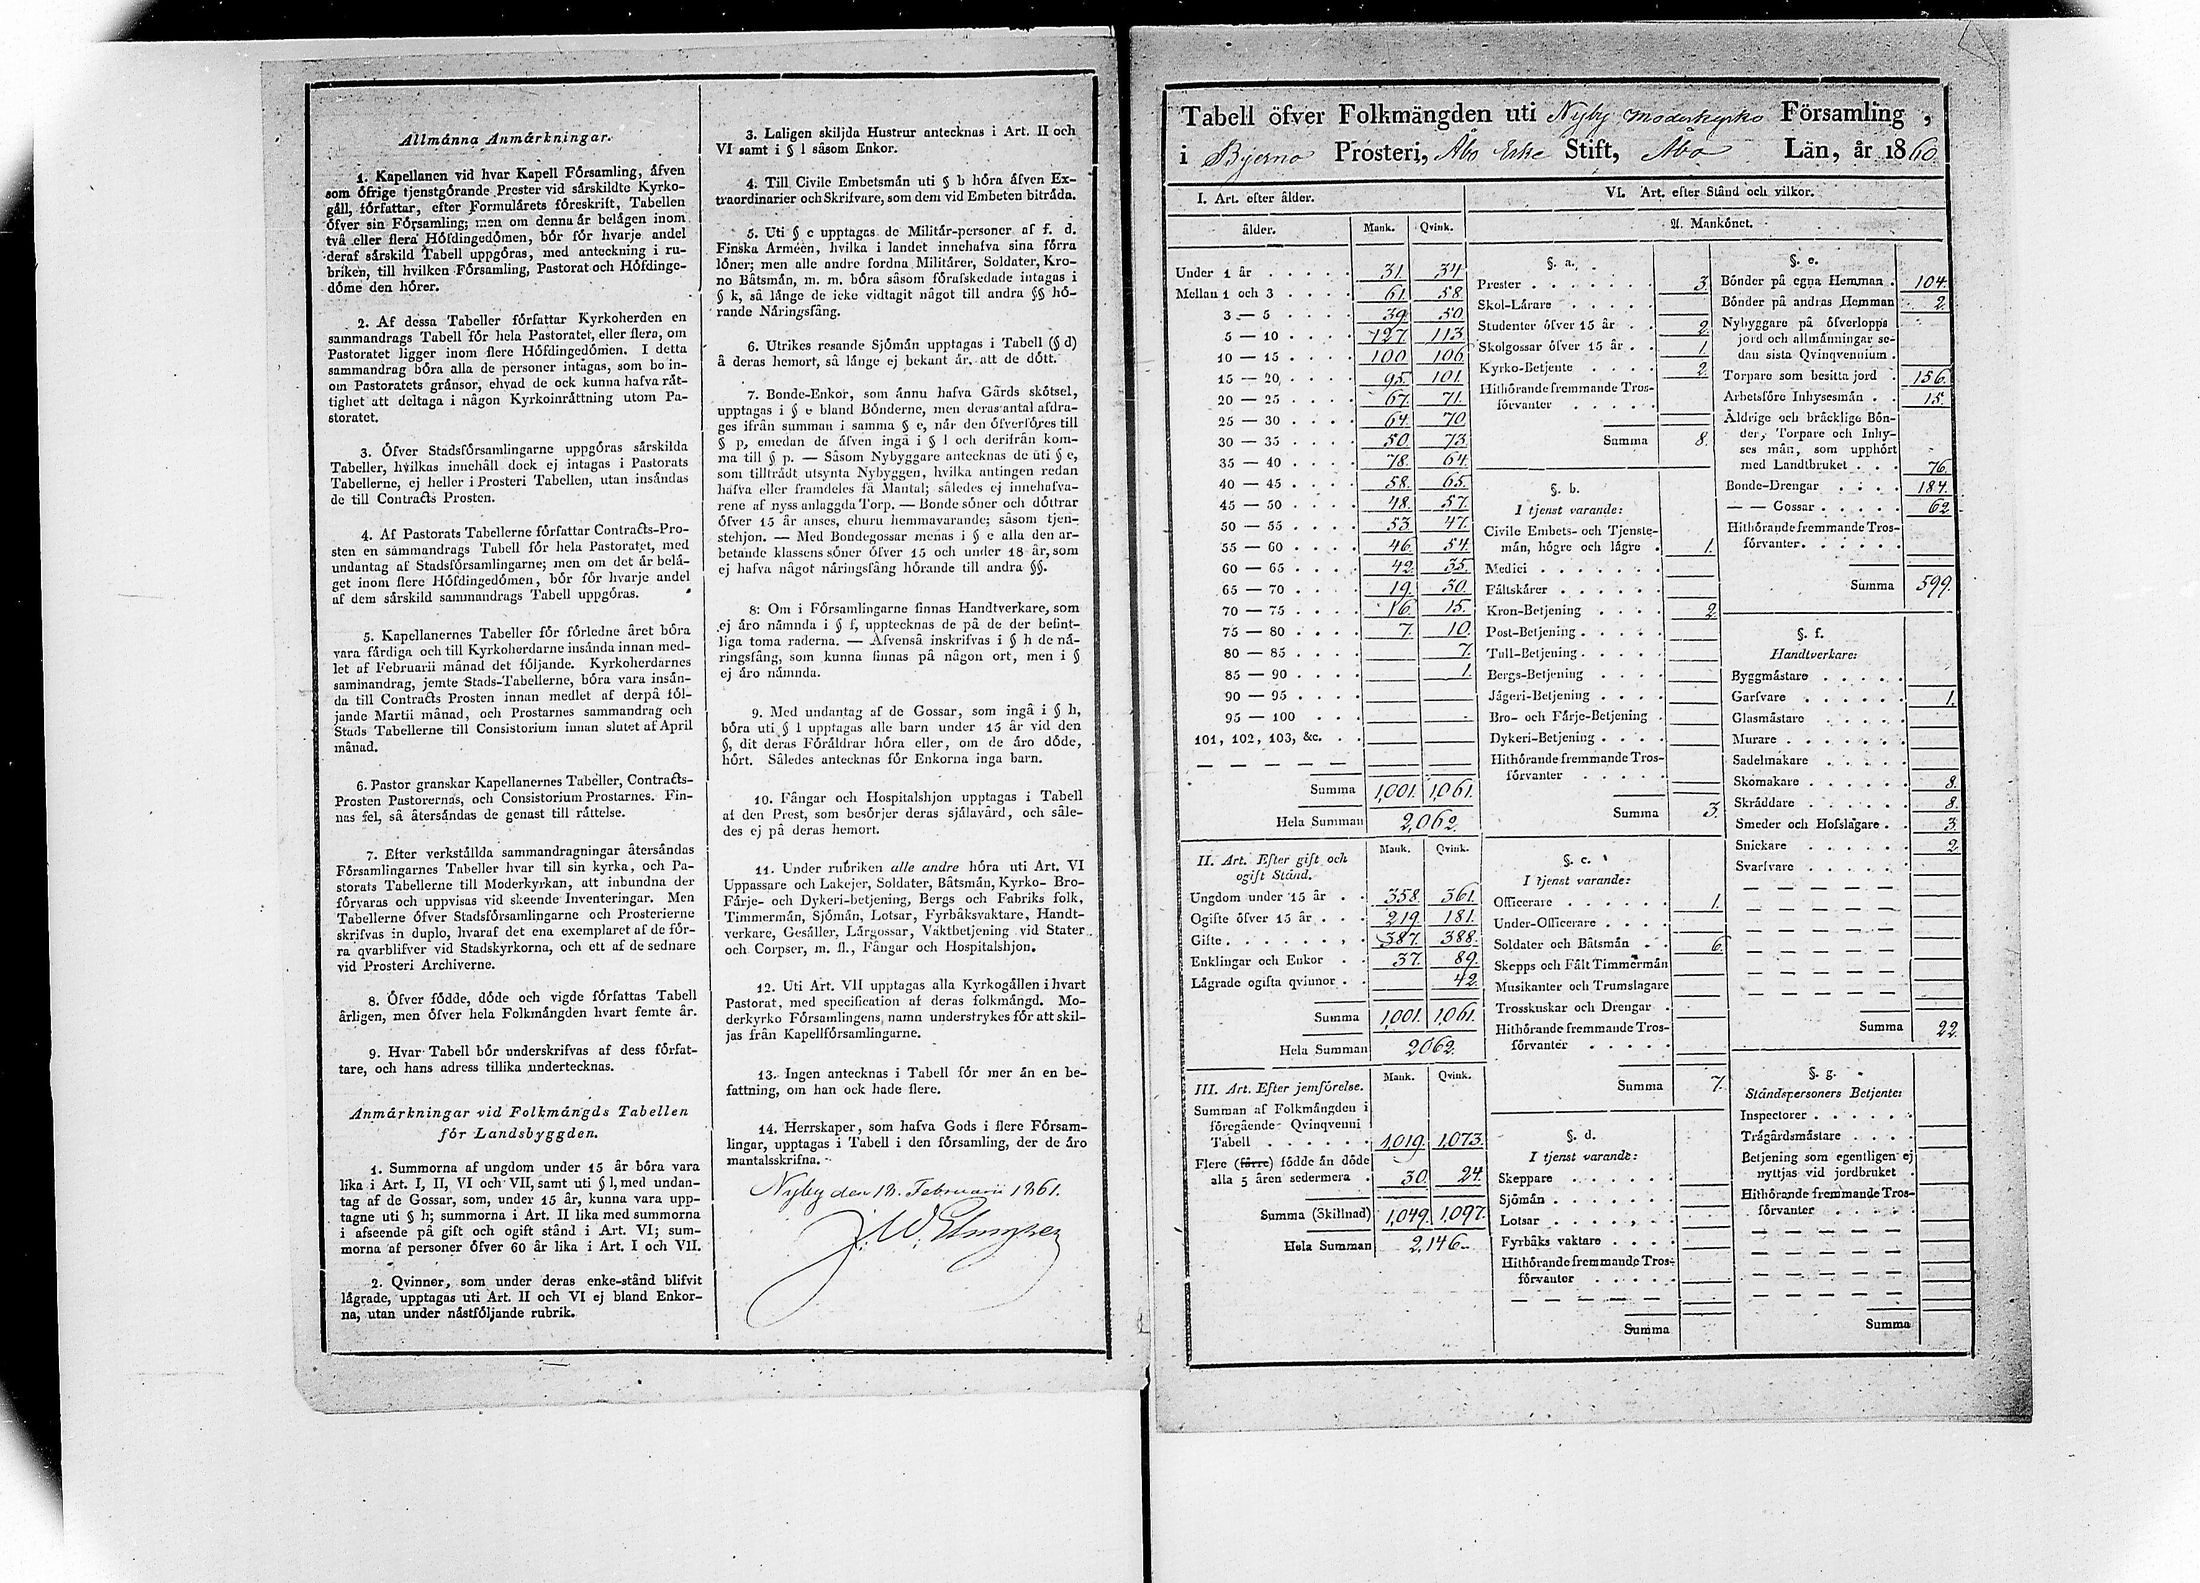 Allmånna Anmårkningar.
1. Kapellanen vid hvar Kapell Församling, åfven
som öfrige tjenstgörande Prester vid sårskildte Kyrko-
gåll, författar, efter Formulårets föreskrift, Tabellen
öfver sin Församling; men om denna år belågen inom
två eller flera Höfdingedömen, bör för hvarje andel
deraf sårskild Tabell uppgöras, med anteckning i ru-
briken, till hvilken Församling, Pastorat och Höfdinge-
döme den hörer.
2. Af dessa Tabeller författar Kyrkoherden en
sammandrags Tabell för hela Pastoratet, eller flera, om
Pastoratet ligger inom flere Höfdingedömen. I detta
sammandrag böra alla de personer intagas, som bo in-
om Pastoratets grånsor, ehvad de ock kunna hafva råt-
tighet att deltaga i någon Kyrkoinråttning utom Pa-
storatet.
3. Öfver Stadsförsamlingarne uppgöras sårskilda
Tabeller, hvilkas innehåll dock ej intagas i Pastorats
Tabellerne, ej heller i Prosteri Tabellen, utan insåndas
de till Contracts Prosten.
4. Af Pastorats Tabellerne författar Contracts-Pro-
sten en sammandrags Tabell för hela Pastoratet, med
undantag af Stadsförsamlingarne; men om det år belå-
get inom flere Höfdingedömen, bör för hvarje andel
af dem sårskild sammandrags Tabell uppgöras.
5. Kapellanernes Tabeller för förledne året böra
vara fårdiga och till Kyrkoherdarne insånda innan med-
let af Februarii månad det följande. Kyrkoherdarnes
sammandrag, jemte Stads-Tabellerne, böra vara insån-
da till Contracts Prosten innan medlet af derpå föl-
jande Martii månad, och Prostarnes sammandrag och
Stads Tabellerne till Consistorium innan slutet af April
månad.
6. Pastor granskar Kapellanernes Tabeller, Contracts-
Prosten Pastorernas, och Consistorium Prostarnes. Fin-
nas fel, så återsåndas de genast till råttelse.
7. Efter verkstållda sammandragningar återsåndas
Församlingarnes Tabeller hvar till sin kyrka, och Pa-
storats Tabellerne till Moderkyrkan, att inbundna der
förvaras och uppvisas vid skeende Inventeringar. Men
Tabellerne öfver Stadsförsamlingarne och Prosterierne
skrifvas in duplo, hvaraf det ena exemplaret af de för-
ra qvarblifver vid Stadskyrkorna, och ett af de sednare
vid Prosteri Archiverne.
8. Öfver födde, döde och vigde författas Tabell
årligen, men öfver hela Folkmångden hvart femte år.
9. Hvar Tabell bör underskrifvas af dess förfat-
tare, och hans adress tillika undertecknas.
Anmårkningar vid Folkmångds Tabellen
för Landsbyggden.
1. Summorna af ungdom under 15 år böra vara
lika i Art. I, II, VI och VII, samt uti § l, med undan-
tag af de Gossar, som, under 15 år, kunna vara upp-
tagne uti § h; summorna i Art. II lika med summorna
i afseende på gift och ogift stånd i Art. VI; sum-
morna af personer öfver 60 år lika i Art. I och VII.
2. Qvinnor, som under deras enke-stånd blifvit
lågrade, upptagas uti Art. II och VI ej bland Enkor-
na, utan under nåstföljande rubrik.
3. Laligen skiljda Hustrur antecknas i Art. II och
VI samt i § l såsom Enkor.
4. Till Civile Embetsmån uti § b höra åfven Ex-
traordinarier och Skrifvare, som dem vid Embeten bitråda.
5. Uti § c upptagas de Militår-personer af f. d.
Finska Armeen, hvilka i landet innehafva sina förra
löner; men alle andre fordna Militårer, Soldater, Kro-
no Båtsmån, m. m. böra såsom förafskedade intagas i
§ k, så långe de icke vidtagit något till andra §§ hö-
rande Nåringsfång.
6. Utrikes resande Sjömån upptagas i Tabell (§ d)
å deras hemort, så långe ej bekant år, att de dött.
7. Bonde-Enkor, som ånnu hafva Gårds skötsel,
upptagas i § e bland Bönderne, men deras antal afdra-
ges ifrån summan i samma § e, når den öfverföres till
§ p, emedan de åfven ingå i § l och derifrån kom-
ma till § p. — Såsom Nybyggare antecknas de uti § e,
som tilltrådt utsynta Nybyggen, hvilka antingen redan
hafva eller framdeles få Mantal; således ej innehafva-
rene af nyss anlaggda Torp. — Bonde söner och döttrar
öfver 15 år anses, ehuru hemmavarande; såsom tjen-
stehjon. — Med Bondegossar menas i § e alla den ar-
betande klassens söner öfver 15 och under 18 år, som
ej hafva något nåringsfång hörande till andra §§.
8. Om i Församlingarne finnas Handtverkare, som
ej åro nåmnda i § f, upptecknas de på de der befint-
liga toma raderna. — Åfvenså inskrifvas i § h de nå-
ringsfång, som kunna finnas på någon ort, men i §
ej åro nåmnda.
9. Med undantag af de Gossar, som ingå i § h,
böra uti § l upptagas alle barn under 15 år vid den
§, dit deras Föråldrar höra eller, om de åro döde,
hört. Således antecknas för Enkorna inga barn.
10. Fångar och Hospitalshjon upptagas i Tabell
af den Prest, som besörjer deras själavård, och såle-
des ej på deras hemort.
11. Under rubriken alle andre höra uti Art. VI
Uppassare och Lakejer, Soldater, Båtsmån, Kyrko- Bro-
Fårje- och Dykeri-betjening, Bergs och Fabriks folk,
Timmermån, Sjömån, Lotsar, Fyrbåksvaktare, Handt-
verkare, Gesåller, Lårgossar, Vaktbetjening vid Stater
och Corpser, m. fl., Fångar och Hospitalshjon.
12. Uti Art. VII upptagas alla Kyrkogållen i hvart
Pastorat, med specification af deras folkmångd. Mo-
derkyrko Församlingens namn understrykes för att skil-
jas från Kapellförsamlingarne.
13. Ingen antecknas i Tabell för mer ån en be-
fattning, om han ock hade flere.
14. Herrskaper, som hafva Gods i flere Försam-
lingar, upptagas i Tabell i den församling, der de åro
mantalsskrifna.
Nyby den 12. Februarii 1861.
J. W.
Tabell öfver Folkmängden uti Nyby moderkyrko Församling,
i Bjerno Prosteri, Åbo Erke Stift, Åbo Län, år 1860.
I. Art. efter ålder.
ålder. Mank. Qvink.
Under 1 år 31. 34
Mellan 1 och 3 61. 58.
3 — 5 39. 50
5 — 10 127 113
10 — 15 100 106
15 — 20 95. 101.
20 — 25 67. 71.
25 — 30 64. 70.
30 — 35 50. 73.
35 — 40 78. 64.
40 — 45 58. 65.
45 — 50 48. 57.
50 — 55 53 47.
55 — 60 46. 54.
60 — 65 42. 35.
65 — 70 19. 30.
70 — 75 16. 15.
75 — 80 7. 10.
80 — 85 7.
85 — 90 1.
90 — 95
95 — 100
101, 102, 103, &c.
Summa 1,001. 1,061.
Hela Summan 2,062.
II. Art. Efter gift och
ogift Stånd. Mank. Qvink.
Ungdom under 15 år 358. 361.
Ogifte öfver 15 år 219. 181.
Gifte 387. 388.
Enklingar och Enkor 37. 89.
Lågrade ogifta qvinnor 42.
Summa 1,001. 1,061.
Hela Summan 2062.
III. Art. Efter jemförelse. Mank. Qvink.
Summan af Folkmångden i
föregående Qvinqvenni
Tabell 1,019. 1,073.
Flere (förre) födde ån döde
alla 5 åren sedermera 30. 24.
Summa (Skillnad) 1,049. 1,097.
Hela Summan 2,146.
VI. Art. efter Stånd och vilkor.
A. Mankönet.
§. a.
Prester 3.
Skol-Lårare
Studenter öfver 15 år 2.
Skolgossar öfver 15 år 1.
Kyrko-Betjente 2.
Hithörande fremmande Tros-
förvanter
Summa 8.
§. b.
I tjenst varande:
Civile Embets- och Tjenste-
mån, högre och lågre 1.
Medici
Fåltskårer
Kron-Betjening 2.
Post-Betjening
Tull-Betjening
Bergs-Betjening
Jågeri-Betjening
Bro- och Fårje-Betjening
Dykeri-Betjening
Hithörande fremmande Tros-
förvanter
Summa 3.
§. c.
I tjenst varande:
Officerare 1.
Under-Officerare
Soldater och Båtsmån 6.
Skepps och Fålt Timmermån
Musikanter och Trumslagare
Trosskuskar och Drengar
Hithörande fremmande Tros-
förvanter
Summa 7.
§. d.
I tjenst varande:
Skeppare
Sjömån
Lotsar
Fyrbåks vaktare
Hithörande fremmande Tros-
förvanter
Summa
§. e.
Bönder på egna Hemman 104.
Bönder på andras Hemman 2.
Nybyggare på öfverlopps
jord och allmånningar se-
dan sista Qvinqvennium
Torpare som besitta jord 156.
Arbetsföre Inhysesmån 15.
Åldrige och bråcklige Bön-
der, Torpare och Inhy-
ses mån, som upphört
med Landtbruket 76.
Bonde-Drengar 184.
— — Gossar 62.
Hithörande fremmande Tros-
förvanter
Summa 599.
§. f.
Handtverkare:
Byggmåstare
Garfvare 1.
Glasmåstare
Murare
Sadelmakare
Skomakare 8.
Skråddare 8.
Smeder och Hofslagare 3.
Snickare 2.
Svarfvare
Summa 22.
§. g.
Ståndspersoners Betjente:
Inspectorer
Trågårdsmåstare
Betjening som egentligen ej
nyttjas vid jordbruket
Hithörande fremmande Tros-
förvanter
Summa